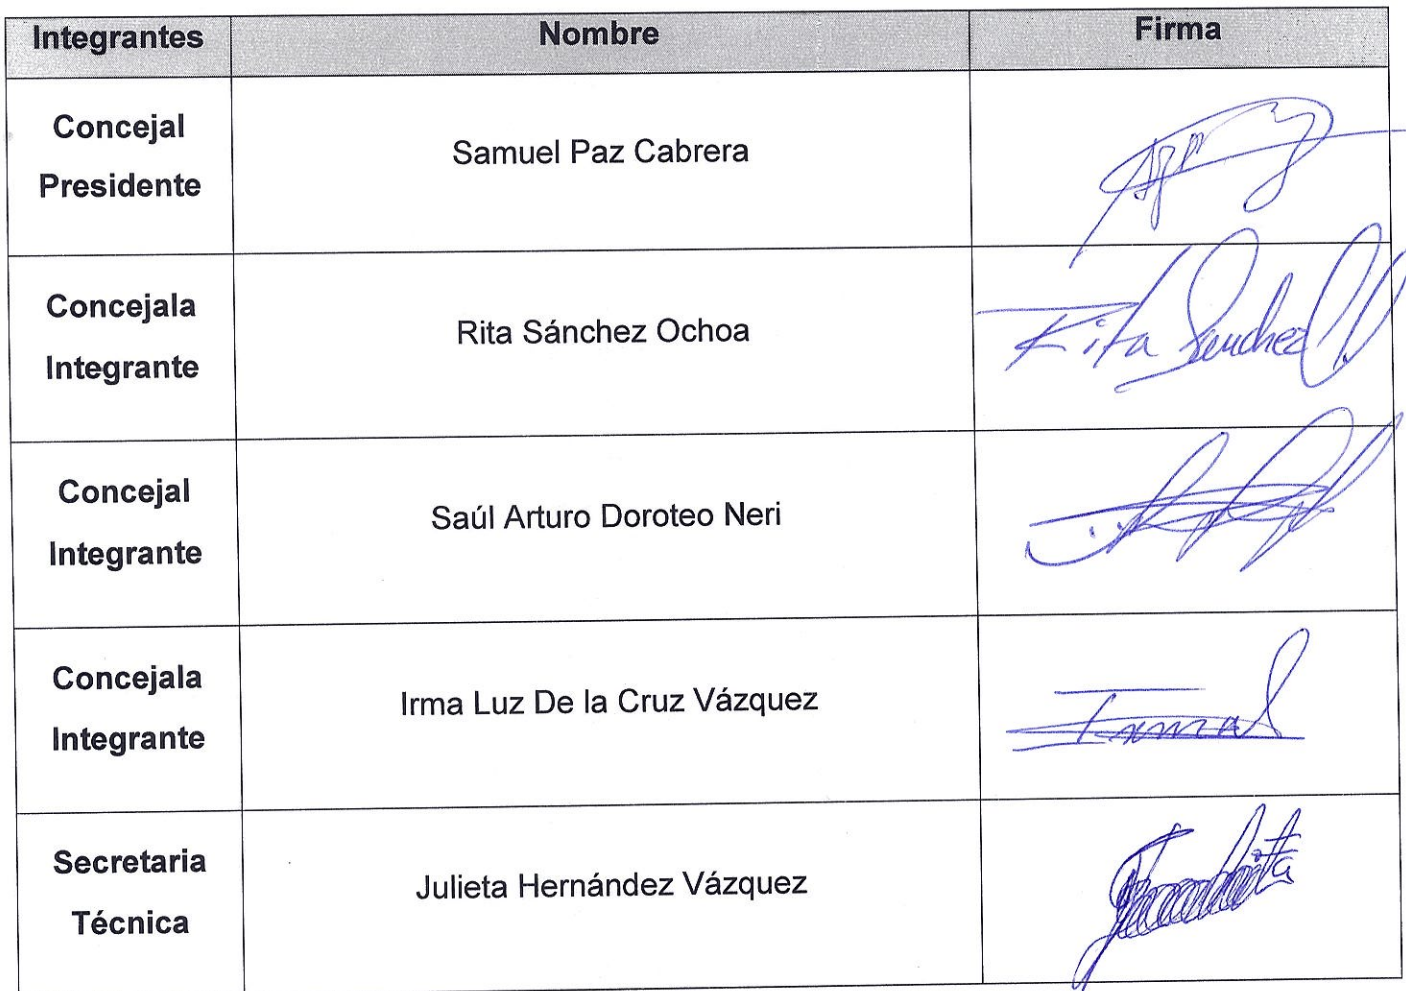 Integrantes Nombre Firma
Concejal
Presidente
Samuel Paz Cabrera
Concejala
Integrante
Rita Sánchez Ochoa
Rita Sanchez O
Concejal
Integrante
Saúl Arturo Doroteo Neri
Concejala
Integrante
Irma Luz De la Cruz Vázquez
Secretaria
Técnica
Julieta Hernández Vázquez